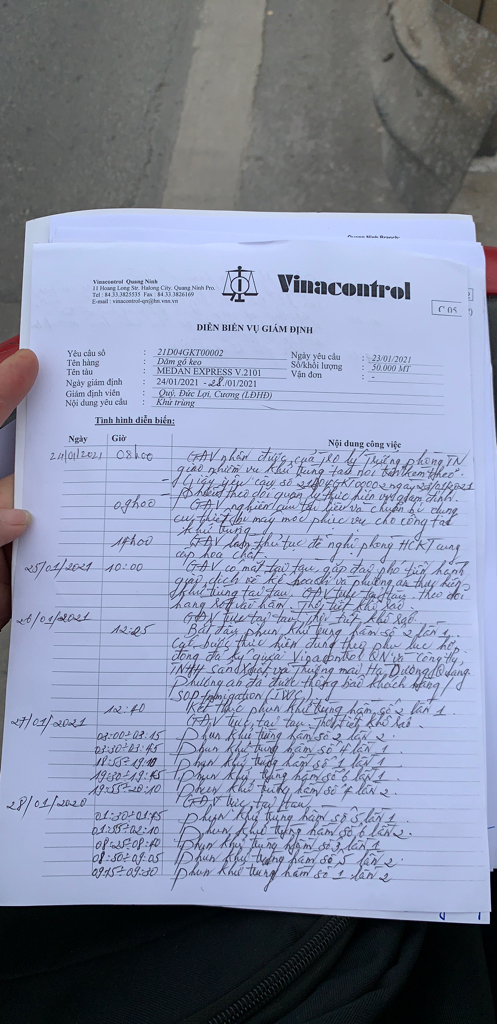 Quang Ninh Branch:
Vinacontrol Quang Ninh
11 Hoang Long Str. Halong City. Quang Ninh Pro.
Tel : 84.33.3825535 Fax : 84.33.3826169
E-mail : vinacontrol-qn@hn.vnn.vn
Vinacontrol
C 05
DIỄN BIẾN VỤ GIÁM ĐỊNH
Yêu cầu số : 21D04GKT00002 Ngày yêu cầu : 23/01/2021
Tên hàng : Dăm gỗ keo Số/khối lượng : 50.000 MT
Tên tàu : MEDAN EXPRESS V.2101 Vận đơn : -
Ngày giám định : 24/01/2021 - 28/01/2021
Giám định viên : Quý, Đức Lợi, Cương (LĐHĐ)
Nội dung yêu cầu : Khử trùng
Tình hình diễn biến:
Ngày Giờ Nội dung công việc
24/01/2021 08h00 GĐV nhận được của Trưởng phòng TN
giao nhiệm vụ khử trùng tàu nói trên kèm theo
- Giấy yêu cầu số 21D04GKT00002 ngày 23/01/2021
- Phiếu theo dõi quản lý thực hiện vụ giám định.
09h00 GĐV nghiên cứu tài liệu và chuẩn bị dụng
cụ thiết bị máy móc phục vụ cho công tác
khử trùng
14h00 GĐV làm thủ tục đề nghị phòng HCKT cung
cấp hóa chất.
25/01/2021 10:00 GĐV có mặt tại tàu, gặp đại phó tiến hành
giao dịch về kế hoạch và phương án thực hiện
khử trùng tại tàu. GĐV trực tại tàu, theo dõi
hàng xếp vào hầm. Thời tiết khô ráo.
26/01/2021 GĐV trực tại tàu, thời tiết khô ráo.
12:25 Bắt đầu phun khử trùng hầm số 2 lần 1.
Các bước thực hiện đúng theo phụ lục hợp
đồng đã ký giữa Vinacontrol QN và công ty
TNHH Sản Xuất và Thương mại Hà Dương Quảng.
Phương án đã được thông báo khách hàng
SOP fumigation
12:40 Kết thúc phun khử trùng hầm số 2 lần 1.
27/01/2021 GĐV trực tại tàu. Thời tiết khô ráo.
03:00÷03:15 Phun khử trùng hầm số 2 lần 2.
03:30÷03:45 Phun khử trùng hầm số 4 lần 1.
18:55÷19:10 Phun khử trùng hầm số 1 lần 1.
19:30÷19:45 Phun khử trùng hầm số 6 lần 1.
19:55÷20:10 Phun khử trùng hầm số 4 lần 2.
28/01/2020 GĐV trực tại tàu.
01:30÷01:45 Phun khử trùng hầm số 5 lần 1.
01:55÷02:10 Phun khử trùng hầm số 6 lần 2.
08:25÷08:40 Phun khử trùng hầm số 3 lần 1.
08:50÷09:05 Phun khử trùng hầm số 5 lần 2.
09:15÷09:30 Phun khử trùng hầm số 1 lần 2